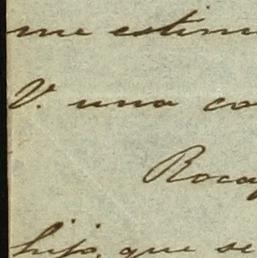 me estim
V. una co
Roca
hijo, que se